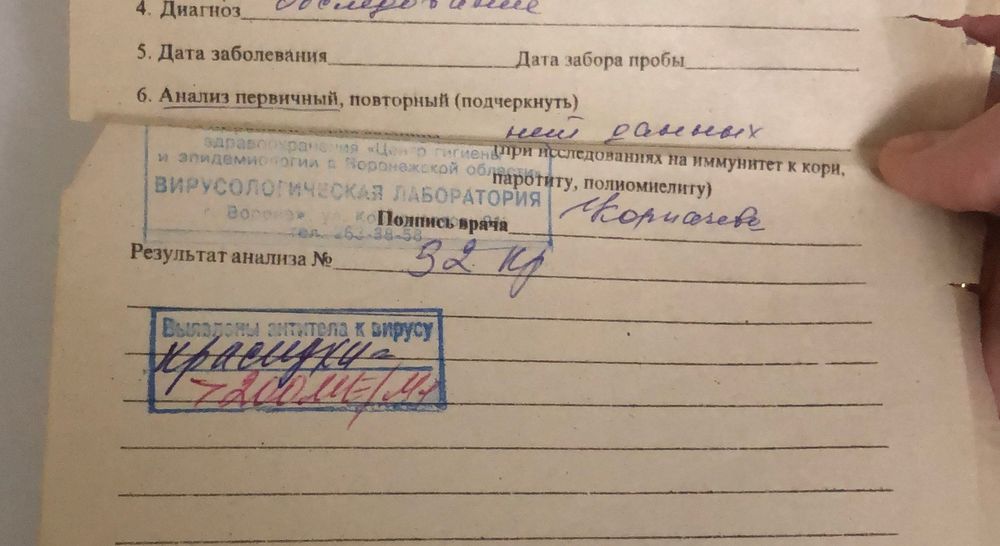 4. Диагноз обследование
5. Дата заболевания Дата забора пробы
6. Анализ первичный, повторный (подчеркнуть)
нет данных
здравоохранения «Центр гигиены
и эпидемиологии в Воронежской области»
(при исследованиях на иммунитет к кори,
паротиту, полиомиелиту)
ВИРУСОЛОГИЧЕСКАЯ ЛАБОРАТОРИЯ
г. Воронеж, ул.
тел. 263-38-58
Подпись врача
Результат анализа № 92 кр
Выявлены антитела к вирусу
краснухи =
>200МЕ/мл